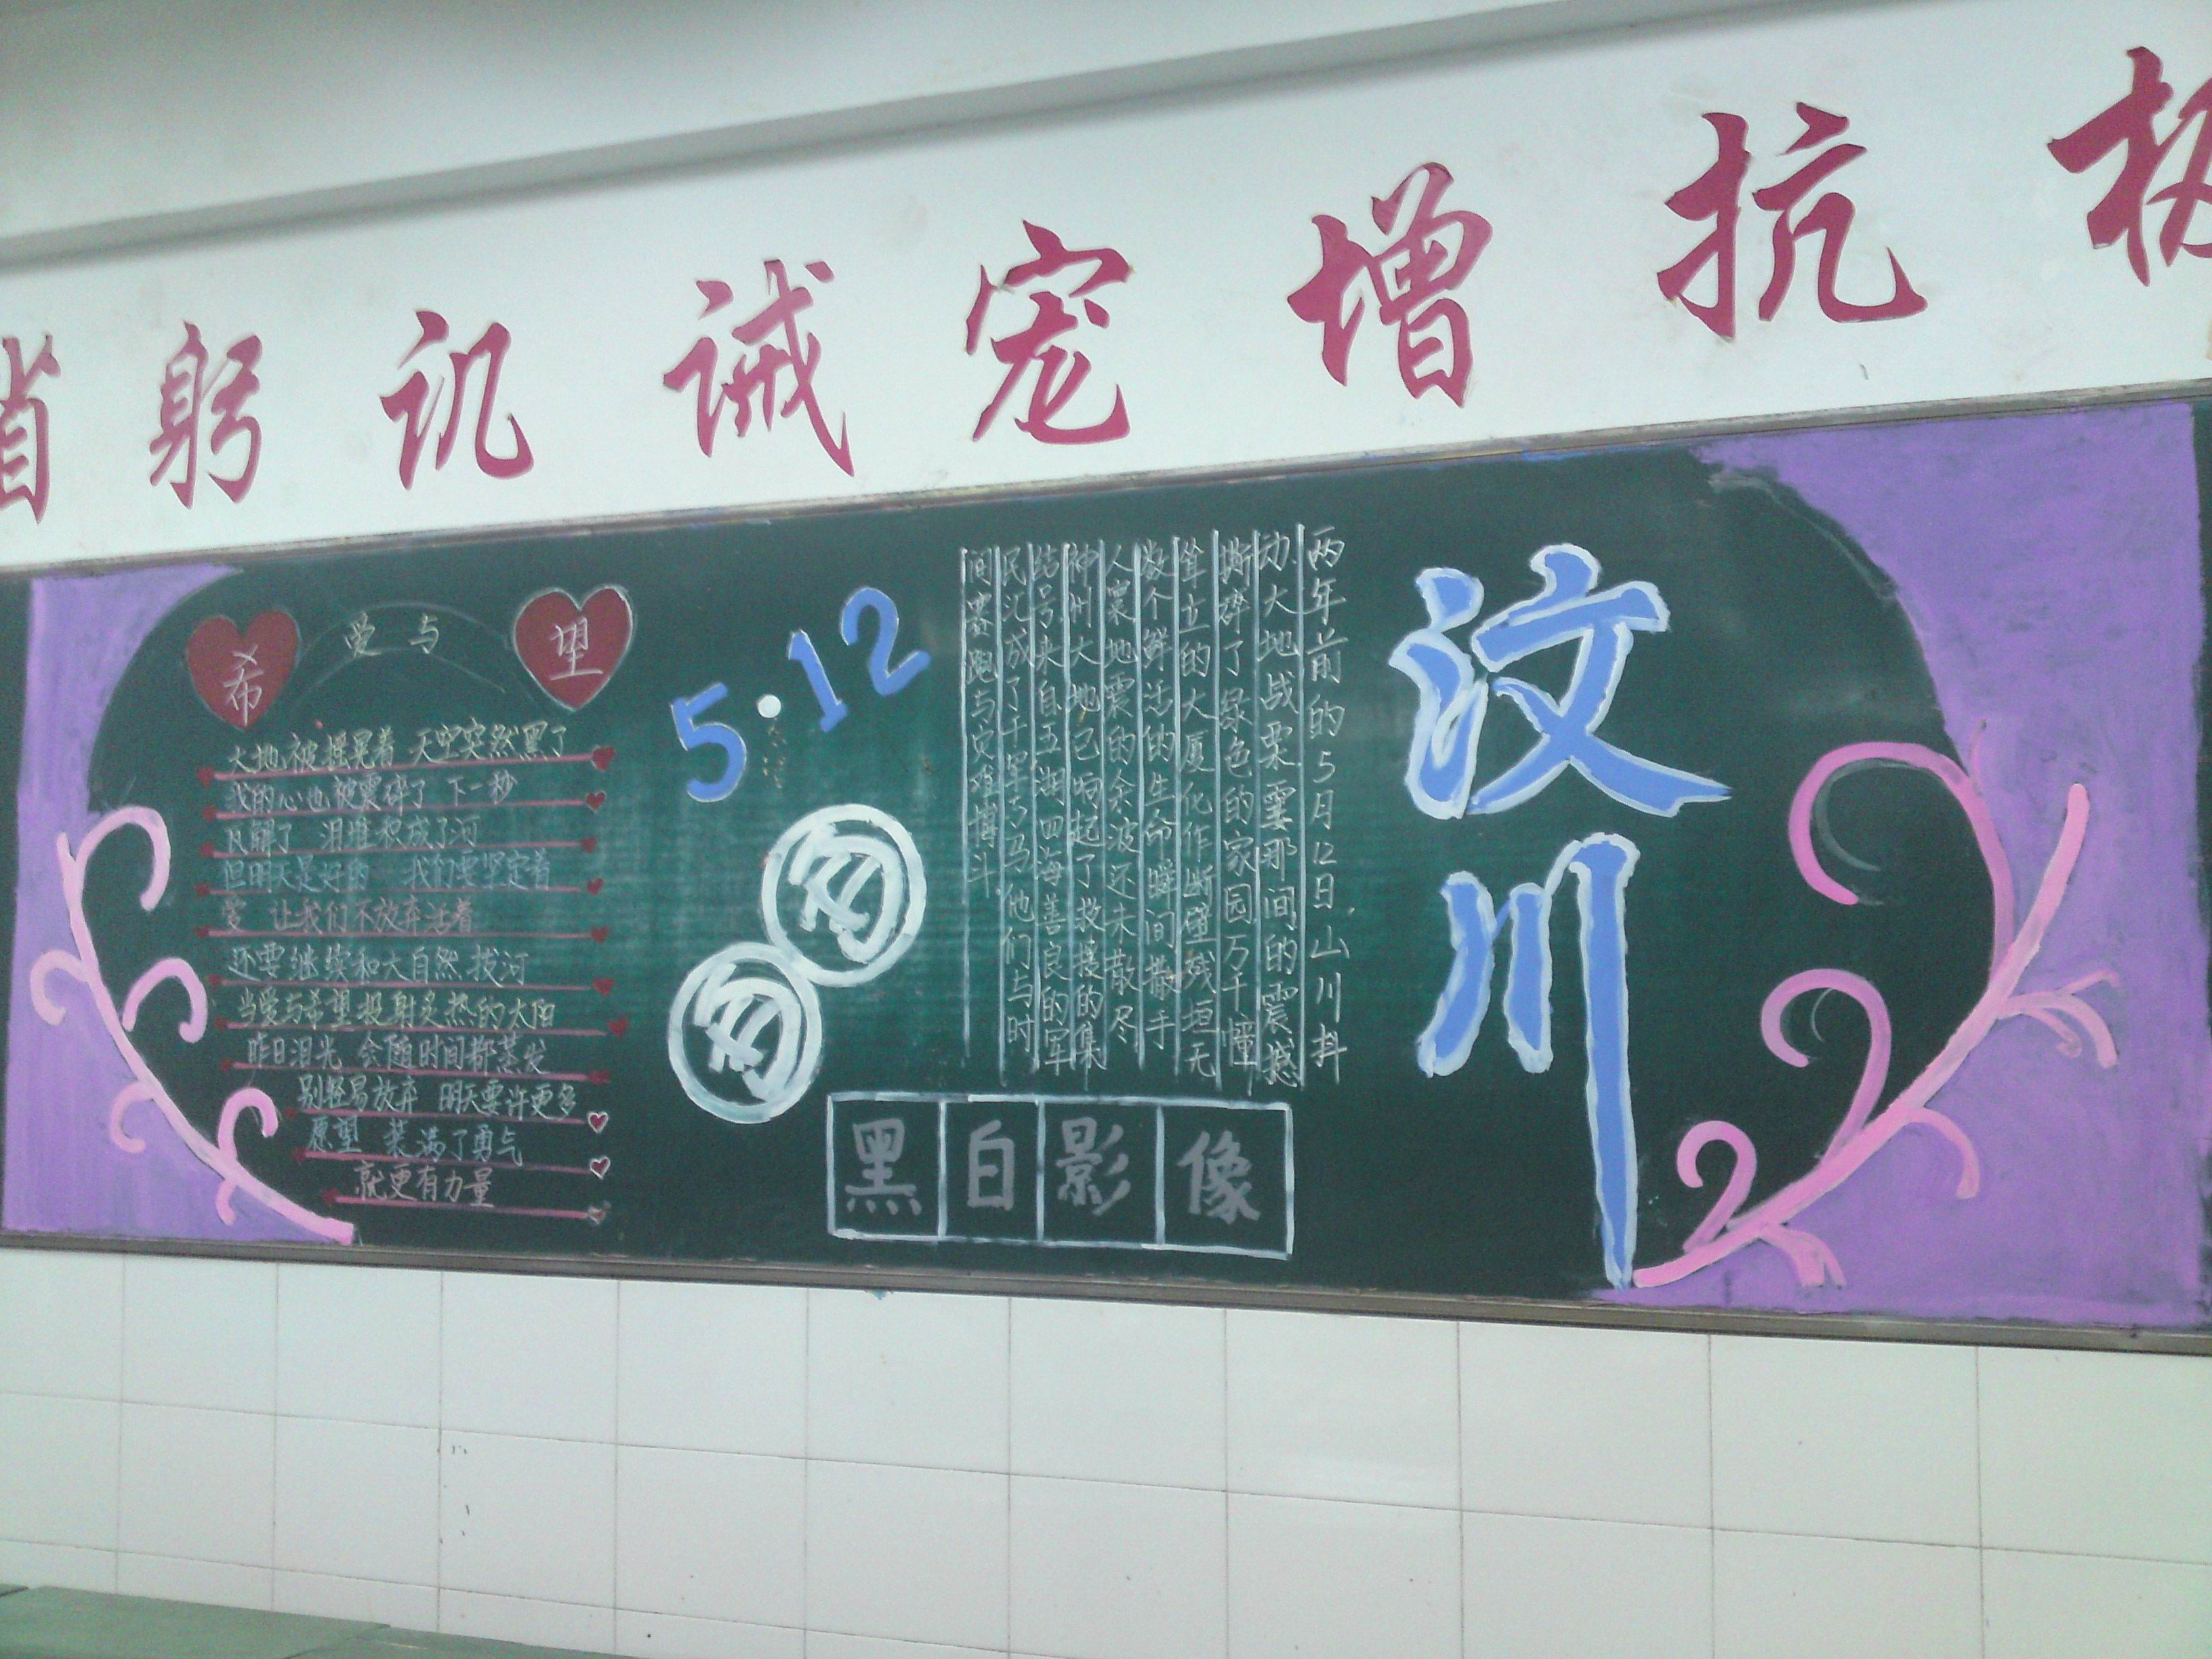 省躬讥诫宠增抗极
希 爱与 望
大地被摇晃着 天空突然黑了
我的心也被震碎了 下一秒
瓦解了 泪堆积成了河
但明天是好的 我们要坚定着
爱 让我们不放弃活着
还要继续和大自然拔河
当爱与希望投射炙热的太阳
昨日泪光 会随时间都蒸发
别轻易放弃 明天要许更多
愿望 装满了勇气
就更有力量
5·12
勿
两年前的5月12日,山川抖
动.大地战栗霎那间的震撼
撕碎了绿色的家园万千幢
耸立的大厦化作断壁残垣无
数个鲜活的生命瞬间撒手
人寰地震的余波还未散尽
神州大地已响起了救援的集
结号来自五湖四海善良的军
民汇成了千军万马他们与时
间赛跑与灾难搏斗
黑白影像
汶川